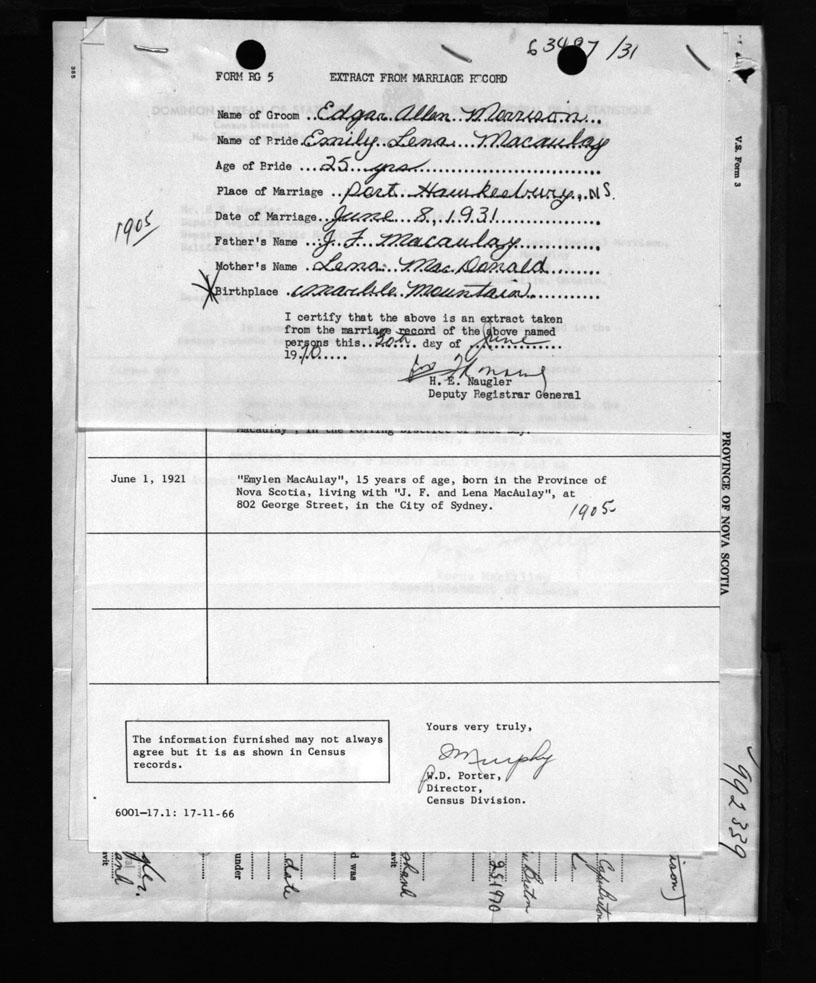 63487/31
FORM RG 5 EXTRACT FROM MARRIAGE RECORD
Name of Groom ..Edgar Allen Morrison...
Name of Bride.Emily Lena Macaulay
Age of Bride ...25 yrs
Place of Marriage ..Port Hawkesbury, NS.
Date of Marriage..June 8, 1931
1905
Father's Name ...J. F. Macaulay
Mother's Name .Lena MacDonald
Birthplace .Marble Mountain
I certify that the above is an extract taken
from the marriage record of the above named
persons this...30th. day of June
1970.....
H. E. Naugler
Deputy Registrar General
Macaulay", in the Polling District of West Bay.
June 1, 1921 "Emylen MacAulay", 15 years of age, born in the Province of
Nova Scotia, living with "J. F. and Lena MacAulay", at
802 George Street, in the City of Sydney.
1905
The information furnished may not always
agree but it is as shown in Census
records.
Yours very truly,
Murphy
W.D. Porter,
Director,
Census Division.
6001-17.1: 17-11-66
V.S. Form 3
PROVINCE OF NOVA SCOTIA
992339
under
date
d was
Breton
Cape Breton
ison)